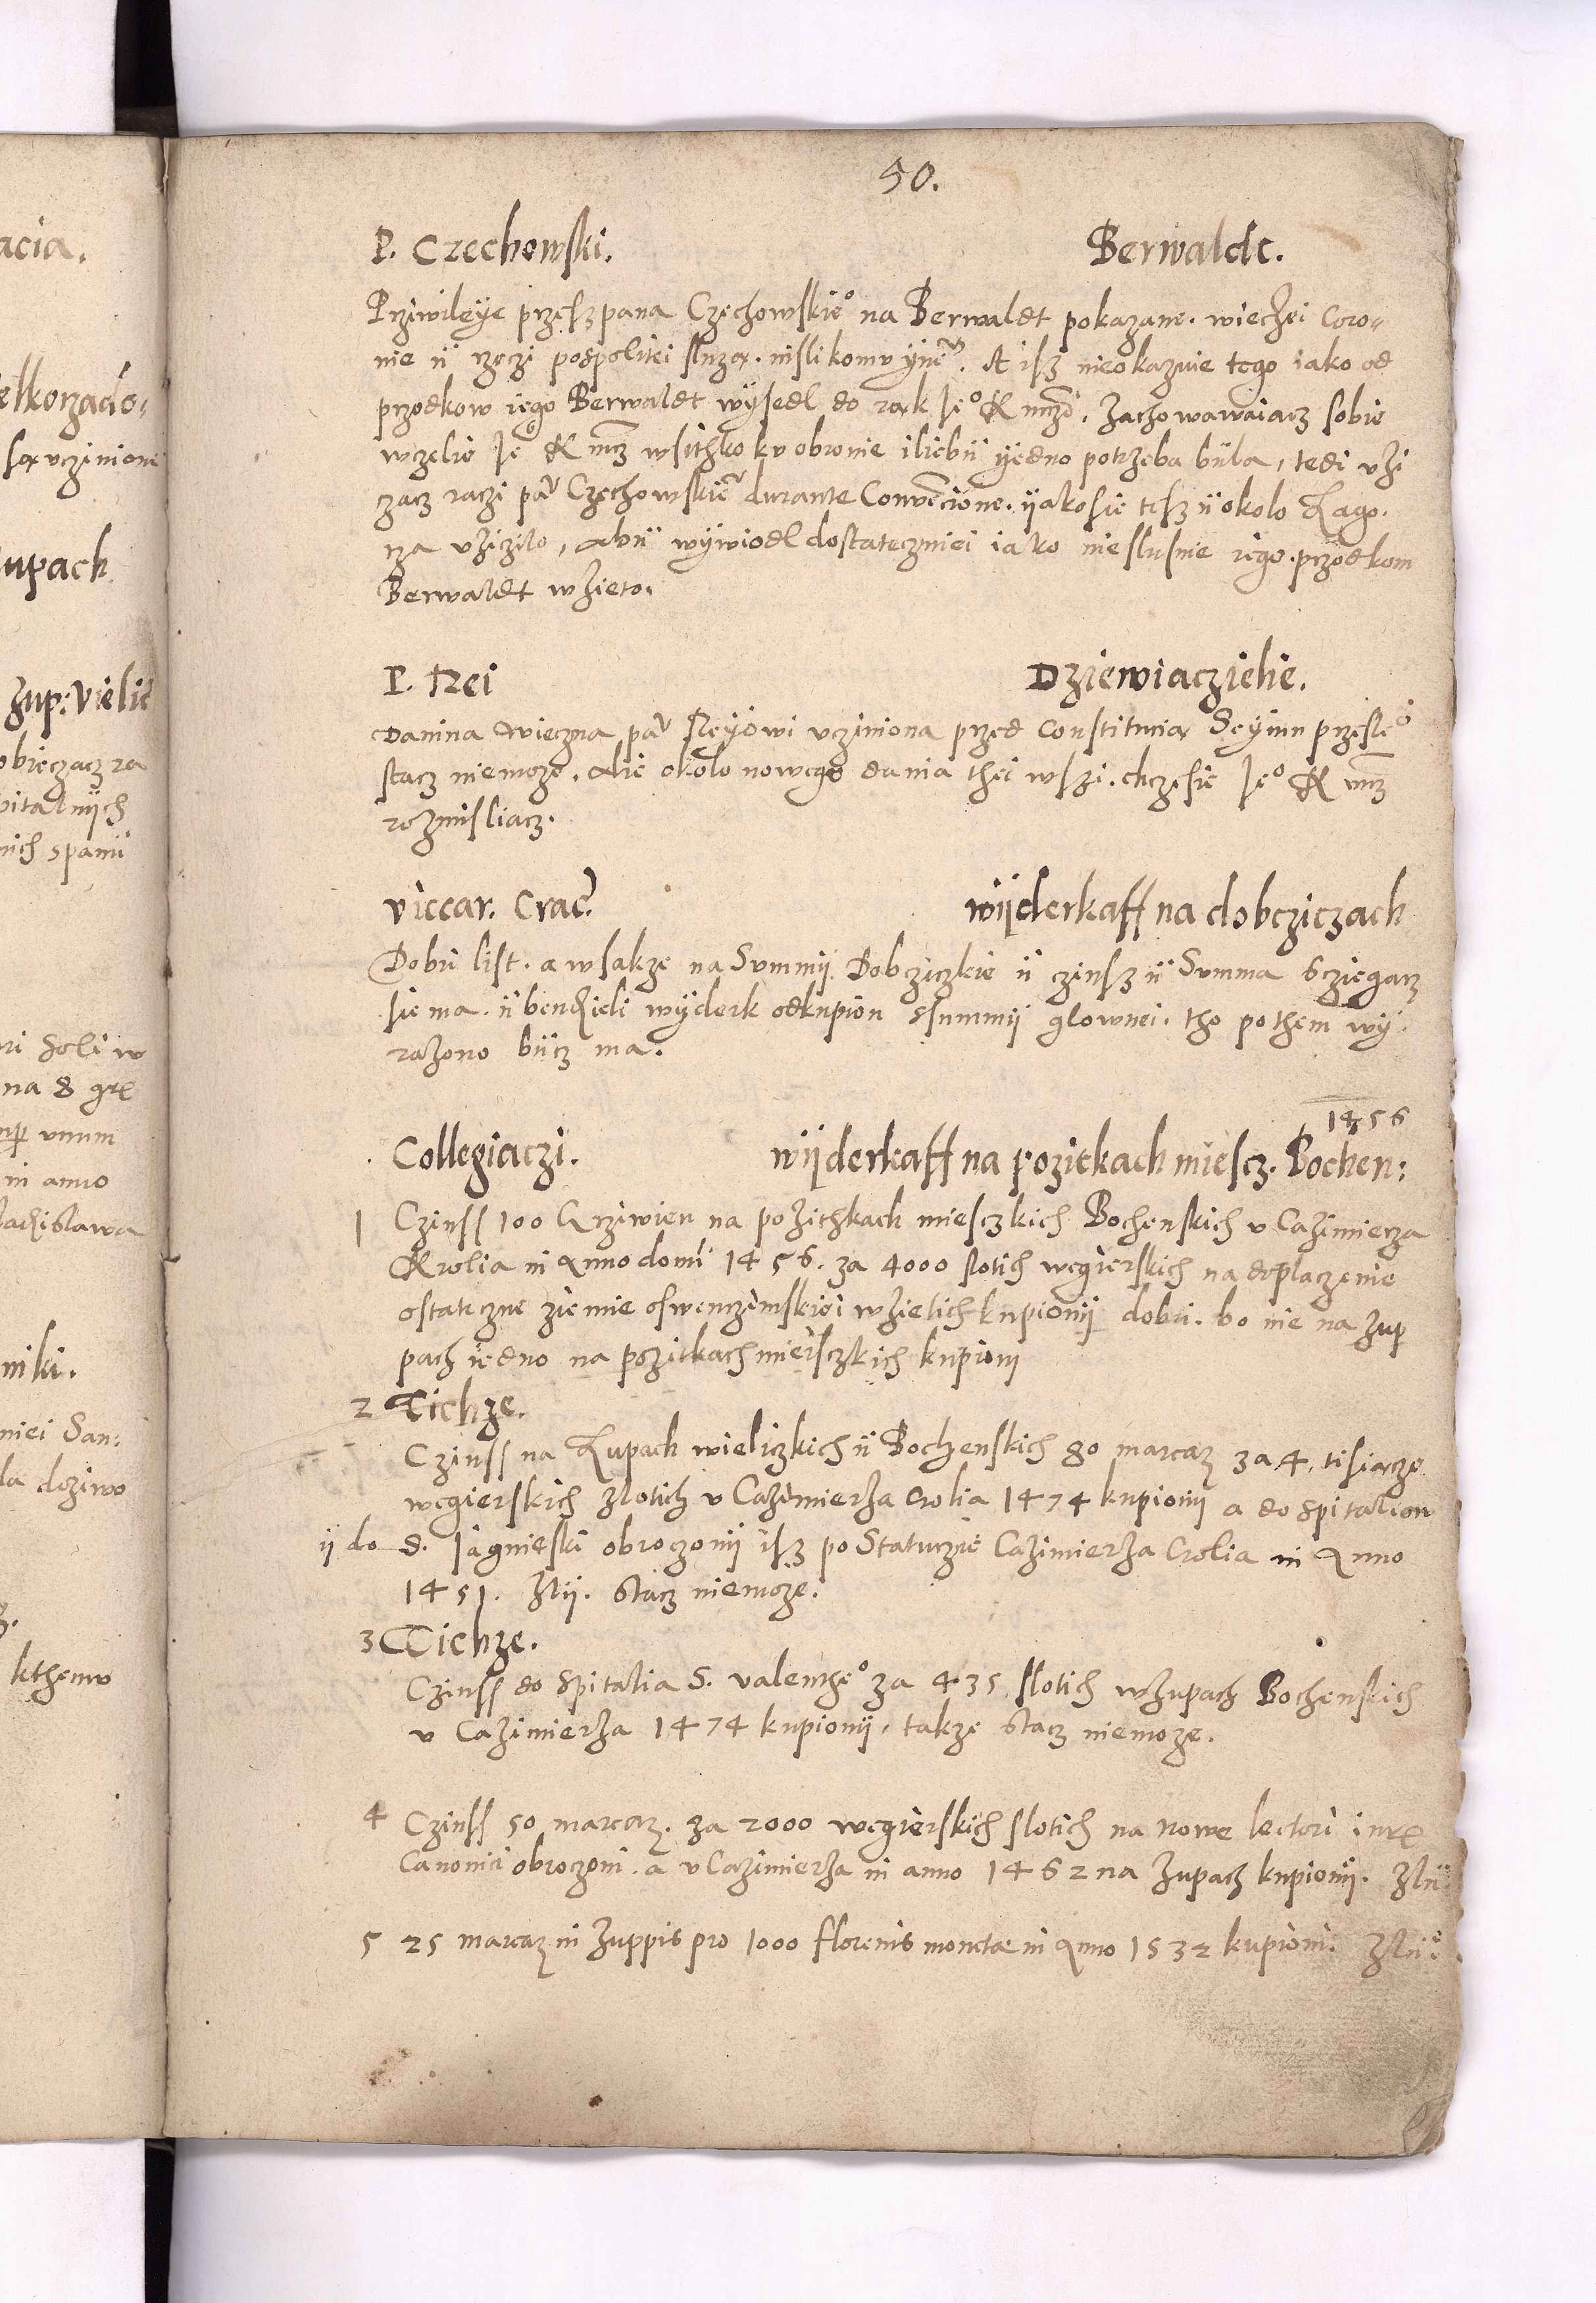 50.
P. Czechowski. Berwaldt.
Priwileÿe przesz pana Czechowskie° na Berwaldt pokazane. wieczei Coro-
nie ÿ rzeczi pospolitei sluza. nisli komu ÿnem. A isz nieokazuie tego iako od
przodkow iego Berwaldt wÿsedl do rak Je° K mczi. Zachowawaiacz sobie
wczelie Je° K mcz wsithko ku obronie iliebÿ ÿedno potrzeba bÿla, tedi uzi
czacz raczi panu Czechowskiemu durante Conventione. ÿako sie tesz ÿ okolo Lago.
rza uziczilo, abÿ wÿwiodl dostateczniei iako nieslusnie iego przodkom
Berwaldt wzieto.
P. Rei Dziewiaczielie.
Danina wieczna panu Reÿowi ucziniona przed Constitucia Seÿmu przesle°
stacz niemoze. Alie okolo nowego dania thei wszi. chcze sie Je° K mcz
rozmisliacz.
viccar. Crac. wÿderkaff na dobcziczach
Dobri list. a wsakze na Summÿ Dobcziczkie ÿ czinsz ÿ Summa scziegacz
sie ma. ÿ bendzieli wÿderk odkupion s summÿ glownei. tho pothem wÿ
razono bÿcz ma.
1456
Collegiaczi. wÿderkaff na pozitkach miescz. Bochen:
1 Czinss 100 Grziwien na pozithkach miesczkich Bochenskich u Cazimierza
Krolia in Anno domi 1456. za 4000 slotich wegierskich na doplaczenie
ostateczne ziemie oswenczimskiei wzietich kupionÿ dobri. bo nie na zup
pach iedno na pozitkach miesczkich kupioni
2 Tichze.
Czinss na Zupach wieliczkich ÿ Bochenskich 80 marcaz za 4. tisiacze
wegierskich zlotich u Cazimierza Crolia 1474 kupionÿ a do spitalion
ÿ do S. Jagnieski obroczonÿ isz po Statuczie Cazimierza Crolia in Anno
1451. Zlÿ. stacz niemoze.
3 Tichze.
Czinss do spitalia S. valenthe° za 435 slotich w zupach Bochenskich
u Cazimierza 1474 kupionÿ, takze stacz niemoze.
4 Czinss 50 marcaz. za 2000 wegierskich slotich na nowe lectori
Canonici obroczoni. a u Cazimierza in anno 1462 na Zupach kupionÿ. Zlÿ.
5 25 marcaz in Zuppis pro 1000 florenis monetae in Anno 1532 kupioni. Zlÿ.